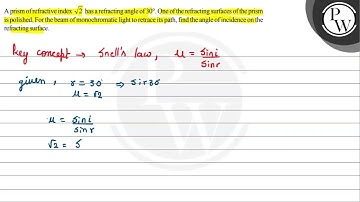 A prism of refractive index √2 has a refracting angle of 30°. One of the refracting surfaces of the prism
is polished. For the beam of monochromatic light to retrace its path, find the angle of incidence on the
refracting surface.
PW
Key concept → Snell's law, μ = sini/sinr
given, r = 30° ⇒ sin30
μ = √2
μ = sini/sinr
√2 = S